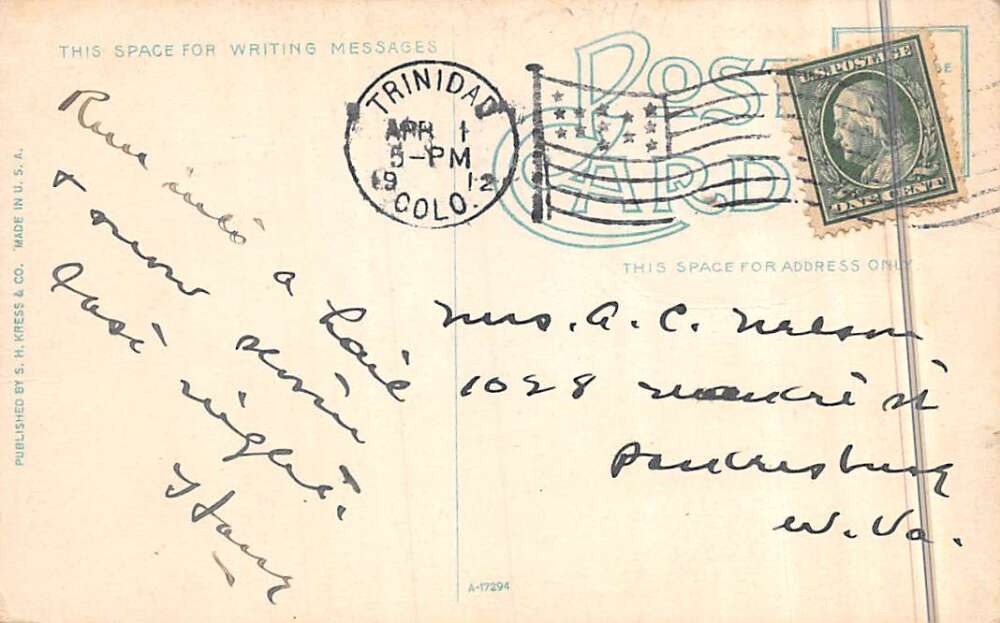 THIS SPACE FOR WRITING MESSAGES
POST CARD
TRINIDAD
APR 1
5-PM
1912
COLO.
U.S. POSTAGE
ONE CENT
THIS SPACE FOR ADDRESS ONLY
PUBLISHED BY S. H. KRESS & CO. MADE IN U. S. A.
Run into a hail
& snow storm
last night.
Mrs. A. C. Nelson
1028 Market St
Parkersburg
W. Va.
A-17294